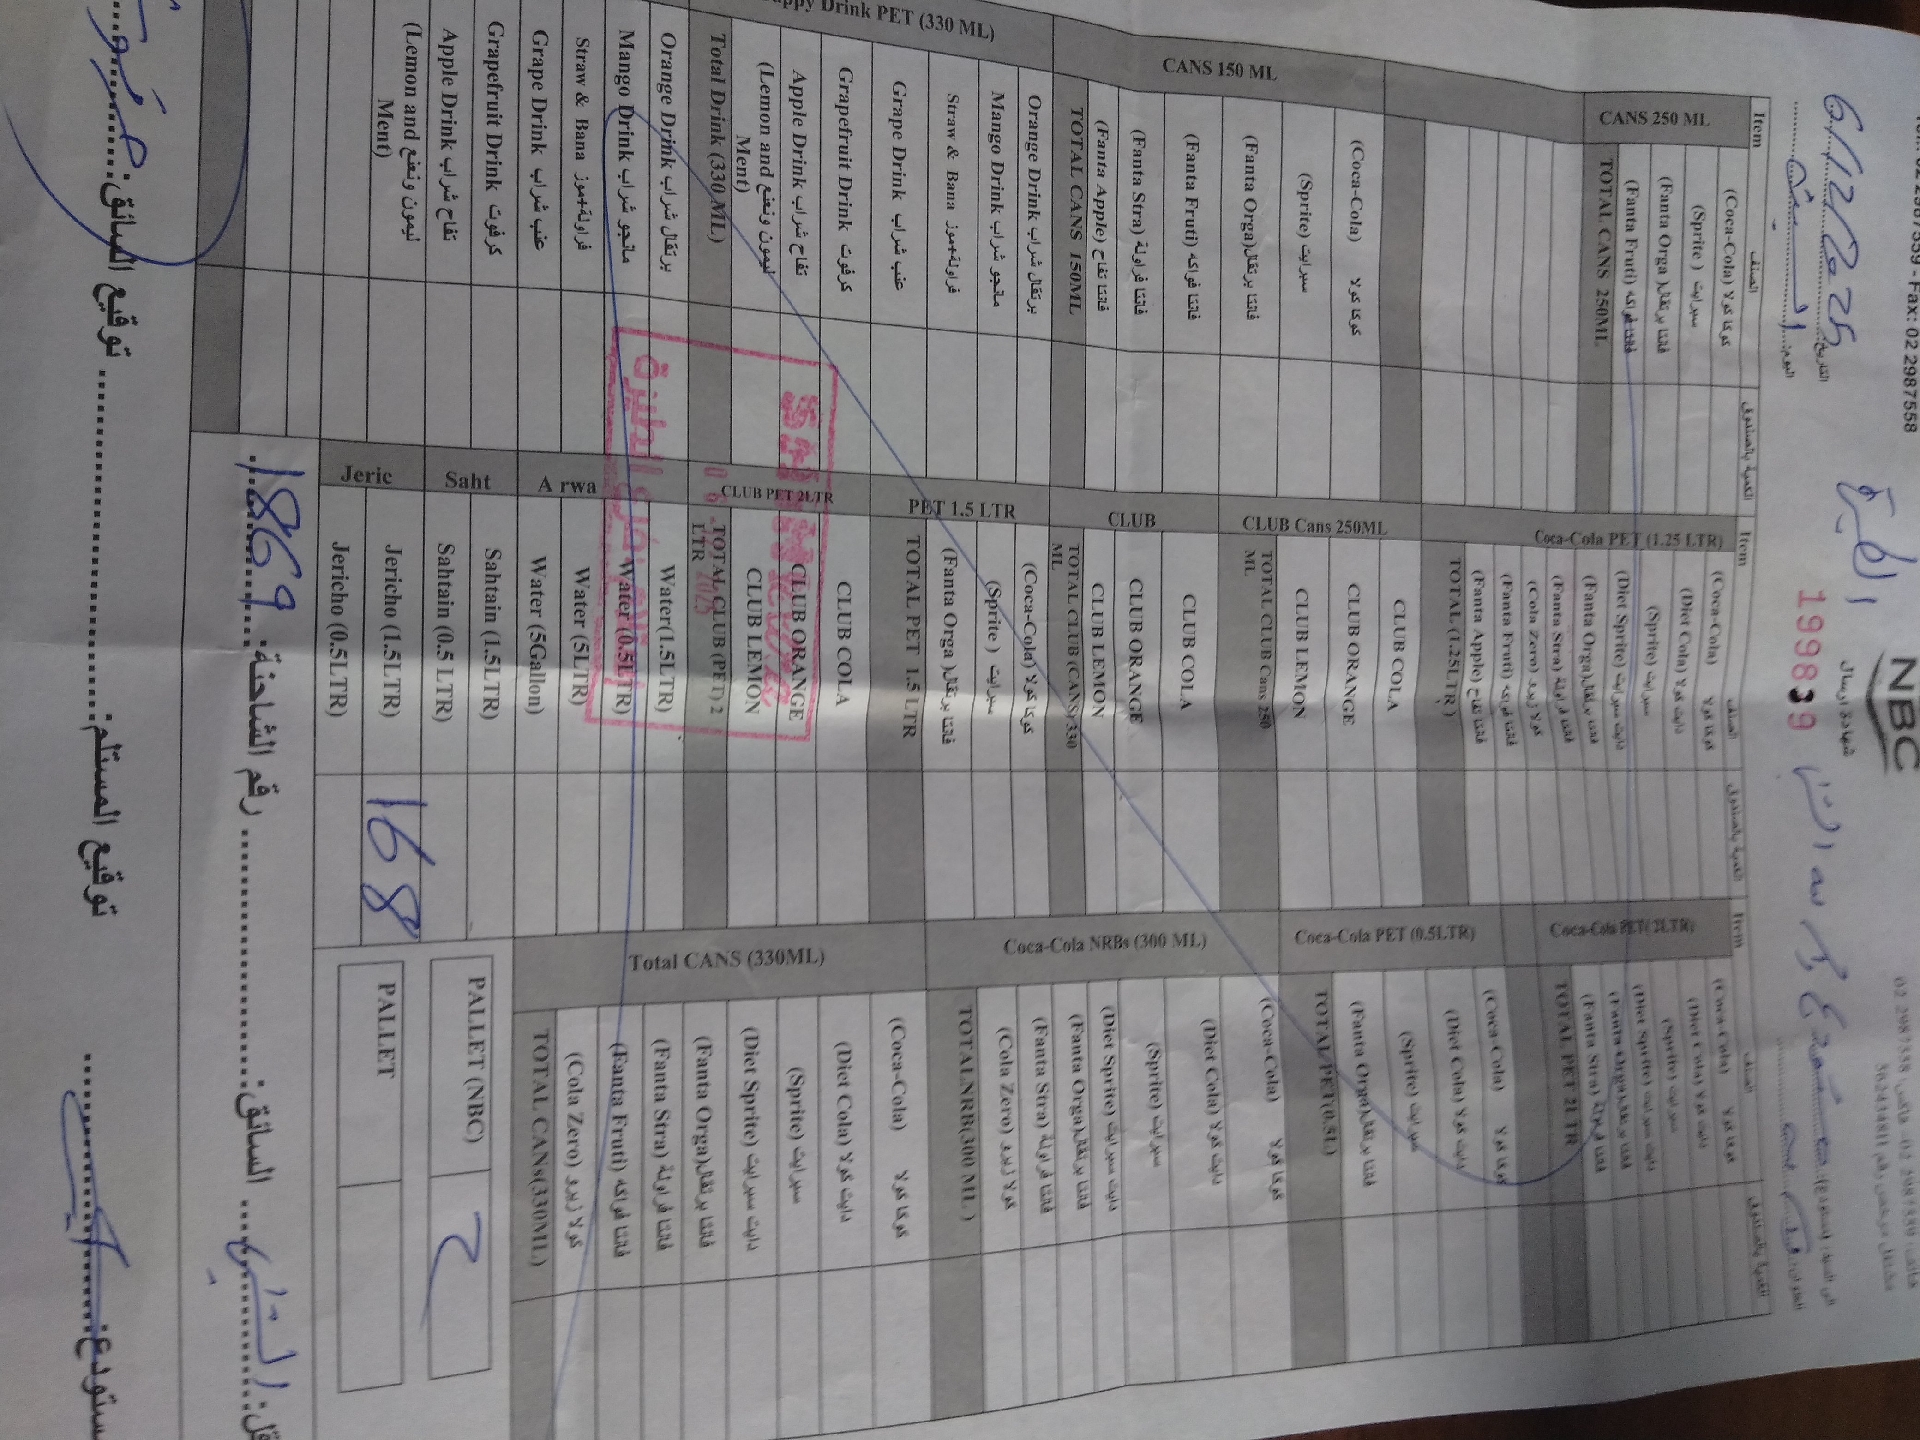 NBC
02 2987559 - Fax: 02 2987558
شهادة إرسال
199839
الطيرة
التاريخ: 6/12/2025
اليوم: السبت
Item الصنف الكمية بالصندوق Item الصنف الكمية بالصندوق Item الصنف الكمية بالصندوق
CANS 250 ML
(Coca-Cola) كوكا كولا
(Sprite ) سبرايت
(Fanta Orga )فانتا برتقال
(Fanta Fruti) فانتا فواكه
TOTAL CANS 250ML
CANS 150 ML
(Coca-Cola) كوكا كولا
(Sprite) سبرايت
(Fanta Orga)فانتا برتقال
(Fanta Fruti) فانتا فواكه
(Fanta Stra) فانتا فراولة
(Fanta Apple) فانتا تفاح
TOTAL CANS 150ML
Drink PET (330 ML)
Orange Drink برتقال شراب
Mango Drink مانجو شراب
Straw & Bana فراولة+موز
Grape Drink عنب شراب
Grapefruit Drink كرفوت
Apple Drink تفاح شراب
(Lemon and ليمون ونعنع
Ment)
Total Drink (330 ML)
Orange Drink برتقال شراب
Mango Drink مانجو شراب
Straw & Bana فراولة+موز
Grape Drink عنب شراب
Grapefruit Drink كرفوت
Apple Drink تفاح شراب
(Lemon and ليمون ونعنع
Ment)
Coca-Cola PET (1.25 LTR)
(Coca-Cola) كوكا كولا
(Diet Cola) دايت كولا
(Sprite) سبرايت
(Diet Sprite) دايت سبرايت
(Fanta Orga)فانتا برتقال
(Fanta Stra) فانتا فراولة
(Cola Zero) كولا زيرو
(Fanta Fruti) فانتا فواكه
(Fanta Apple) فانتا تفاح
TOTAL (1.25LTR )
CLUB Cans 250ML
CLUB COLA
CLUB ORANGE
CLUB LEMON
TOTAL CLUB Cans 250
ML
CLUB
CLUB COLA
CLUB ORANGE
CLUB LEMON
TOTAL CLUB (CANS) 330
ML
PET 1.5 LTR
(Coca-Cola) كوكا كولا
(Sprite ) سبرايت
(Fanta Orga )فانتا برتقال
TOTAL PET 1.5 LTR
CLUB PET 2LTR
CLUB COLA
CLUB ORANGE
CLUB LEMON
TOTAL CLUB (PET) 2
LTR
A rwa
Water(1.5LTR)
Water (0.5LTR)
Water (5LTR)
Water (5Gallon)
Saht
Sahtain (1.5LTR)
Sahtain (0.5 LTR)
Jeric
Jericho (1.5LTR) 168
Jericho (0.5LTR)
Coca-Cola PET( 2LTR)
(Coca-Cola) كوكا كولا
(Diet Cola) دايت كولا
(Sprite) سبرايت
(Diet Sprite) دايت سبرايت
(Fanta Orga)فانتا برتقال
(Fanta Stra) فانتا فراولة
TOTAL PET 2LTR
Coca-Cola PET (0.5LTR)
(Coca-Cola) كوكا كولا
(Diet Cola) دايت كولا
(Sprite) سبرايت
(Fanta Orga)فانتا برتقال
TOTAL PET(0.5L)
Coca-Cola NRBs (300 ML)
(Coca-Cola) كوكا كولا
(Diet Cola) دايت كولا
(Sprite) سبرايت
(Diet Sprite) دايت سبرايت
(Fanta Orga)فانتا برتقال
(Fanta Stra) فانتا فراولة
(Cola Zero) كولا زيرو
TOTAL NRB(300 ML )
Total CANS (330ML)
(Coca-Cola) كوكا كولا
(Diet Cola) دايت كولا
(Sprite) سبرايت
(Diet Sprite) دايت سبرايت
(Fanta Orga)فانتا برتقال
(Fanta Stra) فانتا فراولة
(Fanta Fruti) فانتا فواكه
(Cola Zero) كولا زيرو
TOTAL CANs(330ML)
PALLET (NBC) 2
PALLET
السائق: رقم الشاحنة: 1869
توقيع المستلم: توقيع السائق: